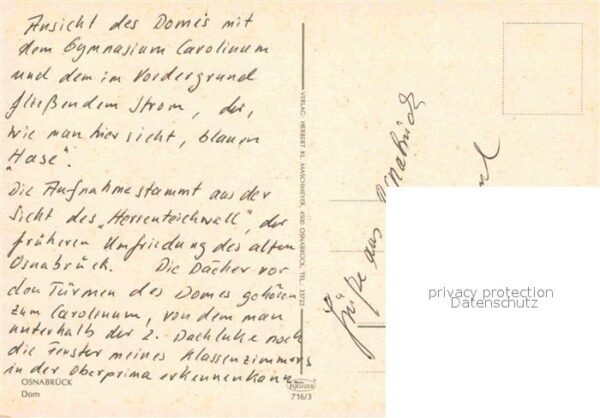 Ansicht des Domes mit
dem Gymnasium Carolinum
und dem im Vordergrund
fließendem Strom, der,
wie man hier sieht, blauen
"Hase".
Die Aufnahme stammt aus der
Sicht des "Herrenteichwall", der
früheren Umfriedung des alten
Osnabrück. Die Dächer vor
den Türmen des Domes gehören
zum Carolinum, von dem man
unterhalb der 2. Dachluke noch
die Fenster meines Klassenzimmers
in der Oberprima erkennen kann.
OSNABRÜCK
Dom
VERLAG HERBERT KL. MASCHMEYER, 4500 OSNABRÜCK, TEL.: 23722
KRÜGER
716/3
Grüße aus Osnabrück
privacy protection
Datenschutz